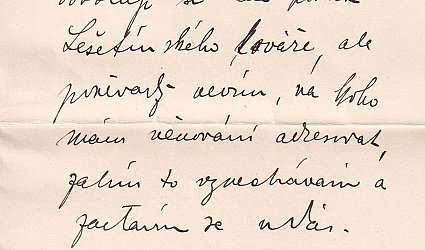 se
Lešetínského kováře, ale
poněvadž nevím, na koho
mám věnování adresovat,
zatím to vynechávám a
zastavím se u Vás.